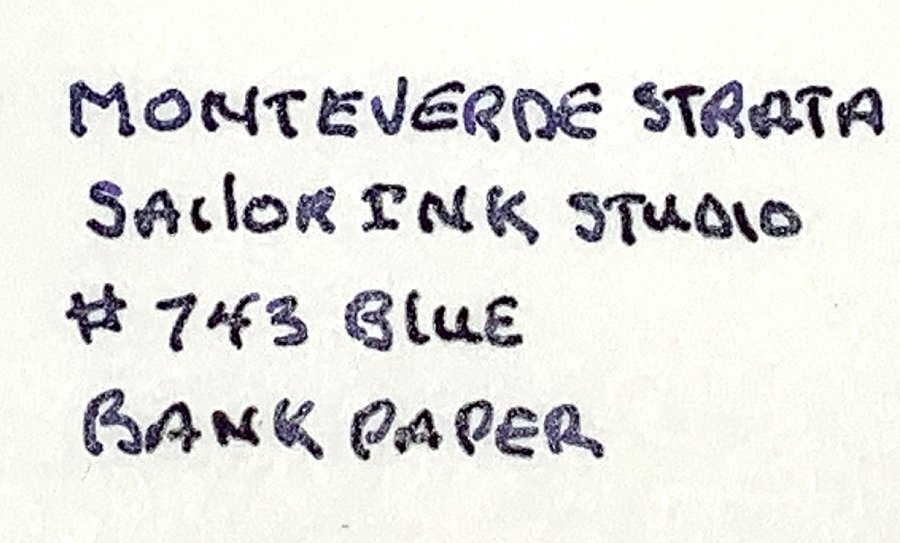 MONTEVERDE STRATA
SAilOR INK STUDIO
# 743 BluE
BANK PAPER